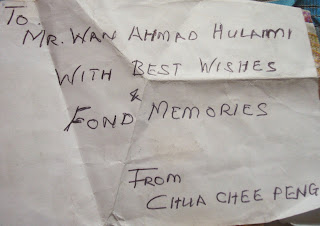 To
Mr. Wan Ahmad Hulaimi
With Best Wishes
&
Fond Memories
From
Chua Chee Peng